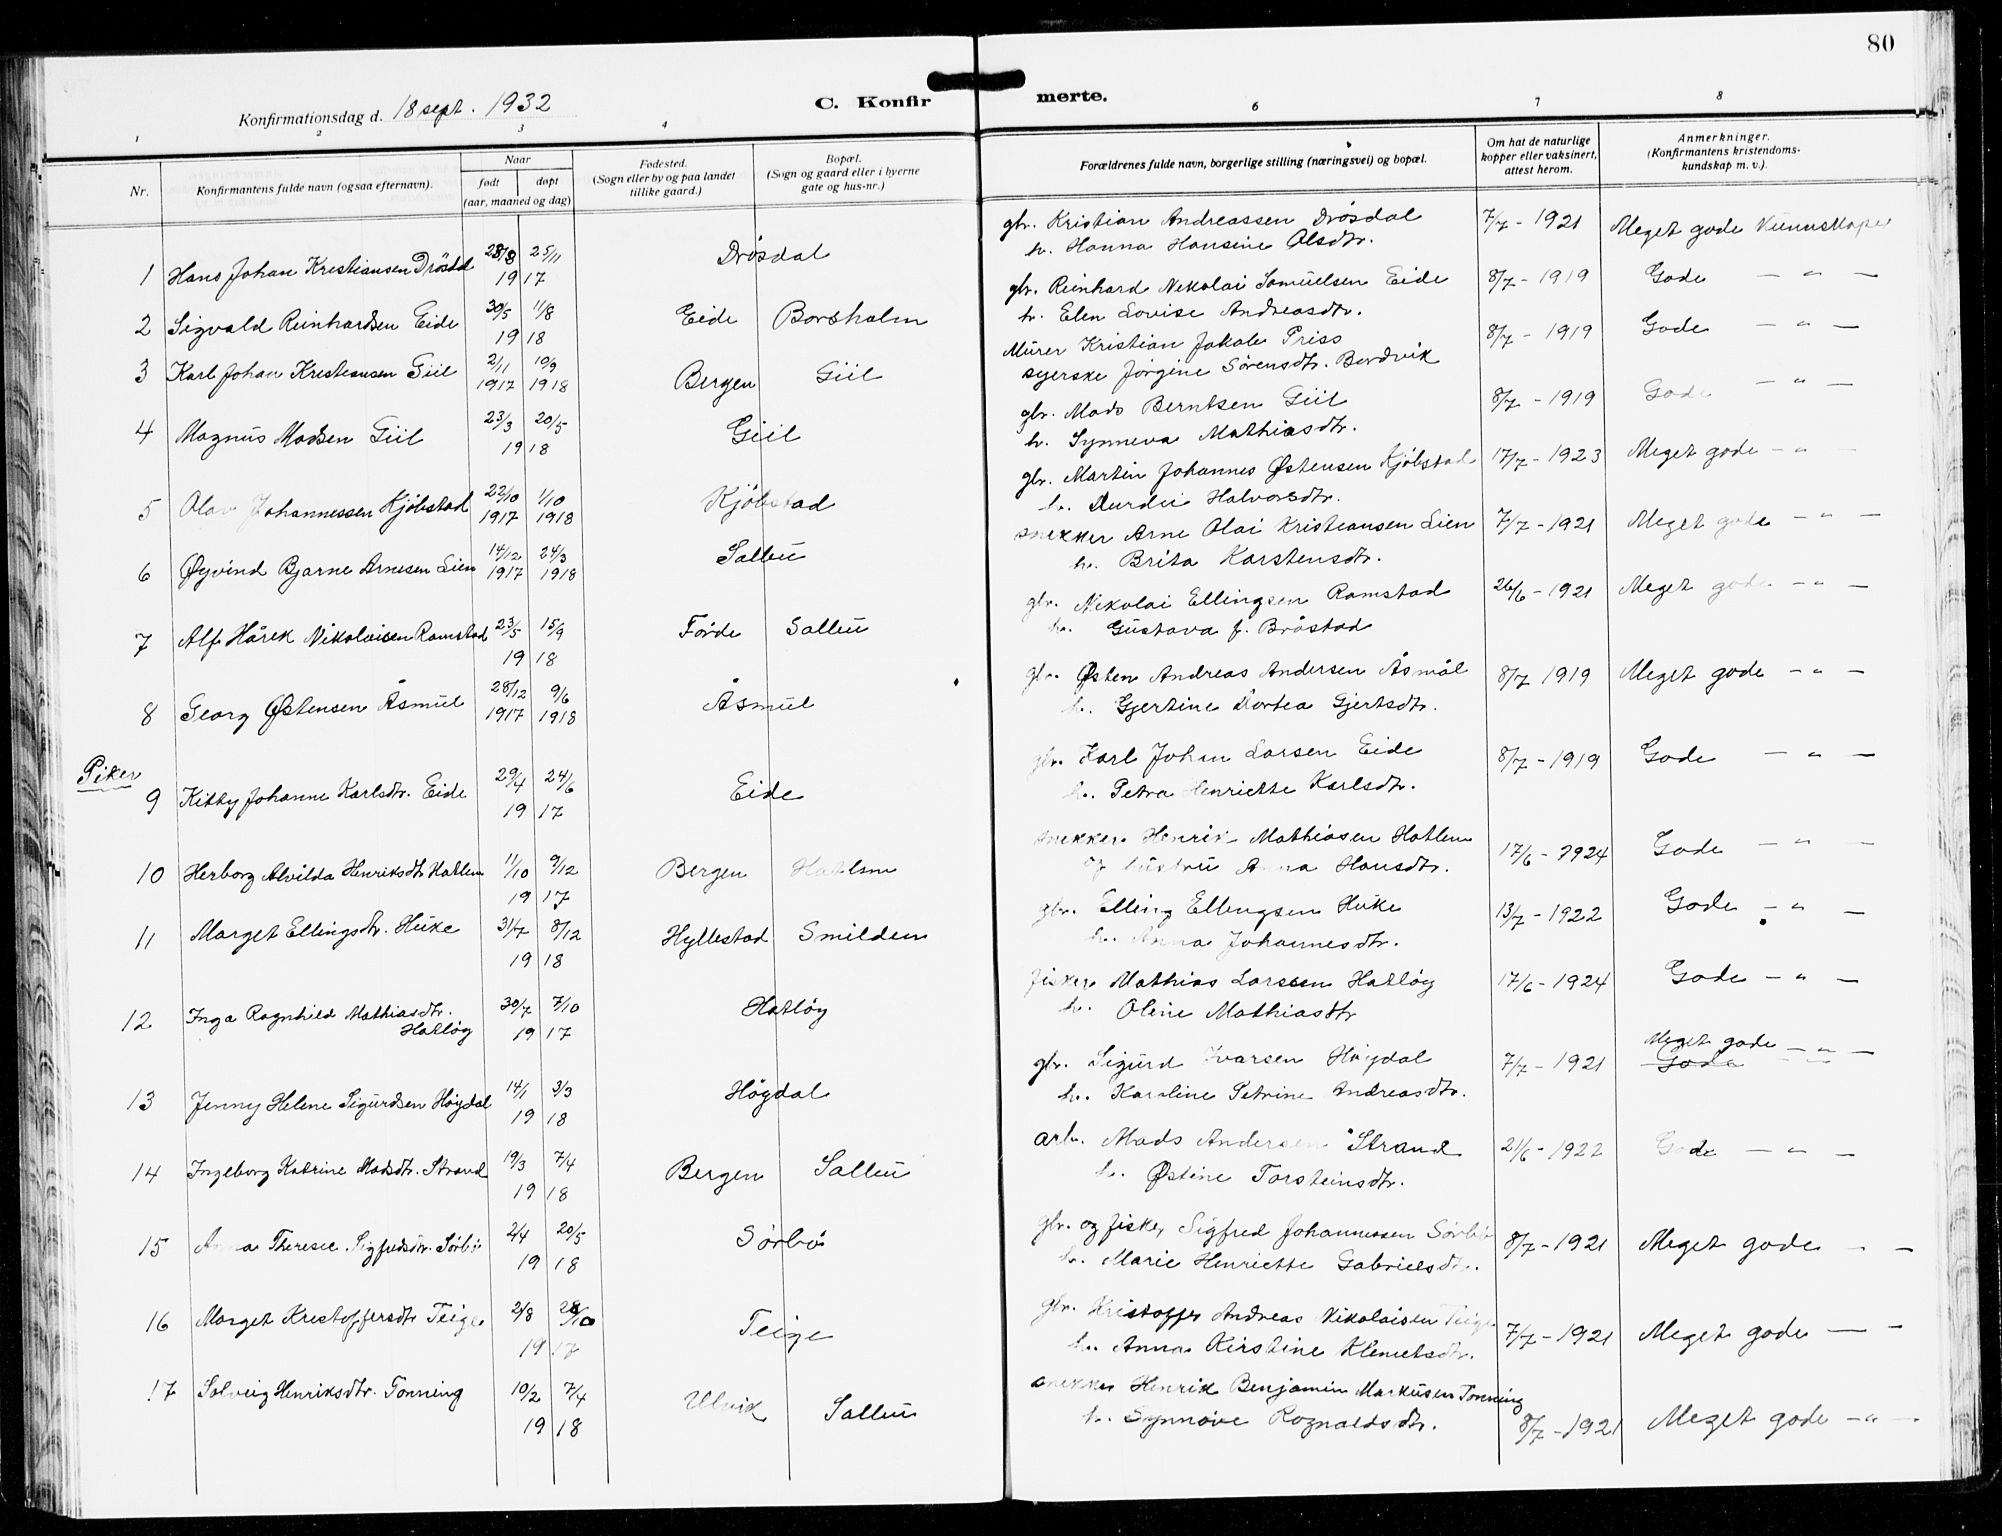 80
Konfirmationsdag d. 18 sept. 1932
C. Konfirmerte.
1 2 3 4 6 7 8
Nr.
Konfirmantens fulde navn (ogsaa efternavn).
Naar
født døpt
(aar, maaned og dag)
Fødested.
(Sogn eller by og paa landet
tillike gaard.)
Bopæl.
(Sogn og gaard eller i byerne
gate og hus-nr.)
Forældrenes fulde navn, borgerlige stilling (næringsvei) og bopæl.
Om hat de naturlige
kopper eller vaksinert,
attest herom.
Anmerkninger.
(Konfirmantens kristendoms-
kundskap m. v.).
1 Hans Johan Kristiansen Drösdal 28/8 25/11 1917 Drösdal
gbr. Kristian Andreassen Drösdal 7/7 - 1921 Meget gode Kunnskaper
h. Hanna Hansine Olsdtr.
2 Sigvald Reinhardsen Eide 30/5 11/8 1918 Eide Borsholm
gbr. Reinhard Nikolai Samuelsen Eide 8/7 - 1919 Gode — " —
h. Elen Lovise Andreasdtr.
3 Karl Johan Kristiansen Giil 2/11 1917 10/9 1918 Bergen Giil
Murer Kristian Jakob Friss 8/7 - 1919 Gode — " —
syerske Jörgine Sörensdtr. Bordvik
4 Magnus Madsen Giil 23/3 20/5 1918 Giil
gbr. Mads Berntsen Giil 8/7 - 1919 Gode — " —
h. Synneva Mathiasdtr.
5 Olav Johannessen Kjöbstad 22/10 1917 1/10 1918 Kjöbstad
gbr. Martin Johannes Østensen Kjöbstad 17/7 - 1923 Meget gode - " -
h. Durdei Halvorsdtr.
6 Øyvind Bjarne Arnesen Lien 14/12 1917 24/3 1918 Salbu
snekker Arne Olai Kristiansen Lien 7/7 - 1921 Meget gode - " -
h. Brita Karstensdtr.
7 Alf Hårek Nikolaisen Ramstad 23/5 15/9 1918 Förde Salbu
gbr. Nikolai Ellingsen Ramstad 26/6 - 1921 Meget gode - " -
h. Gustava f. Bråstad
8 Georg Østensen Åsmul 28/12 1917 9/6 1918 Åsmul
gbr. Østen Andreas Andersen Åsmål 8/7 1919 Meget gode - " -
h. Gjertine Dortea Gjertsdtr.
Piker
9 Kitty Johanne Karlsdtr. Eide 29/4 24/6 1917 Eide
gbr. Karl Johan Larsen Eide 8/7 - 1919 Gode — " —
h. Petra Henriette Karlsdtr.
10 Herborg Alvilda Henriksdtr Hatlem 11/10 9/12 1917 Bergen Hatlem
snekker Henrik Mathiasen Hatlem 17/6 - 1924 Gode — " —
og hustru Anna Hansdtr.
11 Marget Ellingsdtr. Huke 31/7 8/12 1918 Hyllestad Smilden
gbr. Elling Ellingsen Huke 13/7 - 1922 Gode - " —
h. Anna Johannesdtr.
12 Inga Ragnhild Mathiasdtr. Hatlöy 30/7 7/10 1917 Hatlöy
fisker Mathias Larssen Hatlöy 17/6 - 1924 Gode - " —
h. Oline Mathiasdtr
13 Jenny Helene Sigurdsen Höydal 14/1 3/3 1918 Höydal
gbr. Sigurd Ivarsen Höydal 7/7 - 1921 Meget gode - " - Gode
h. Karoline Petrine Andreasdtr.
14 Ingeborg Katrine Madsdtr. Strand 19/3 7/4 1918 Bergen Salbu
arb. Mads Andersen Strand 21/6 - 1922 Gode — " —
h. Østine Torsteinsdtr.
15 Anna Therese Sigfredsdtr. Sörbö 2/4 20/5 1918 Sörbö
gbr. og fisker Sigfred Johannessen Sörbö 8/7 - 1921 Meget gode - -
h. Marie Henriette Gabrielsdtr.
16 Marget Kristoffersdtr Teige 2/8 28/10 1917 Teige
gbr. Kristoffer Andreas Nikolaisen Teige 7/7 - 1921 Meget gode — -
h. Anna Kirstine Klemetsdtr.
17 Solveig Henriksdtr. Tonning 10/2 7/4 1918 Ulvik Salbu
snekker Henrik Benjamin Markusen Tonning 8/7 - 1921 Meget gode - " -
h. Synnöve Ragnaldsdtr.